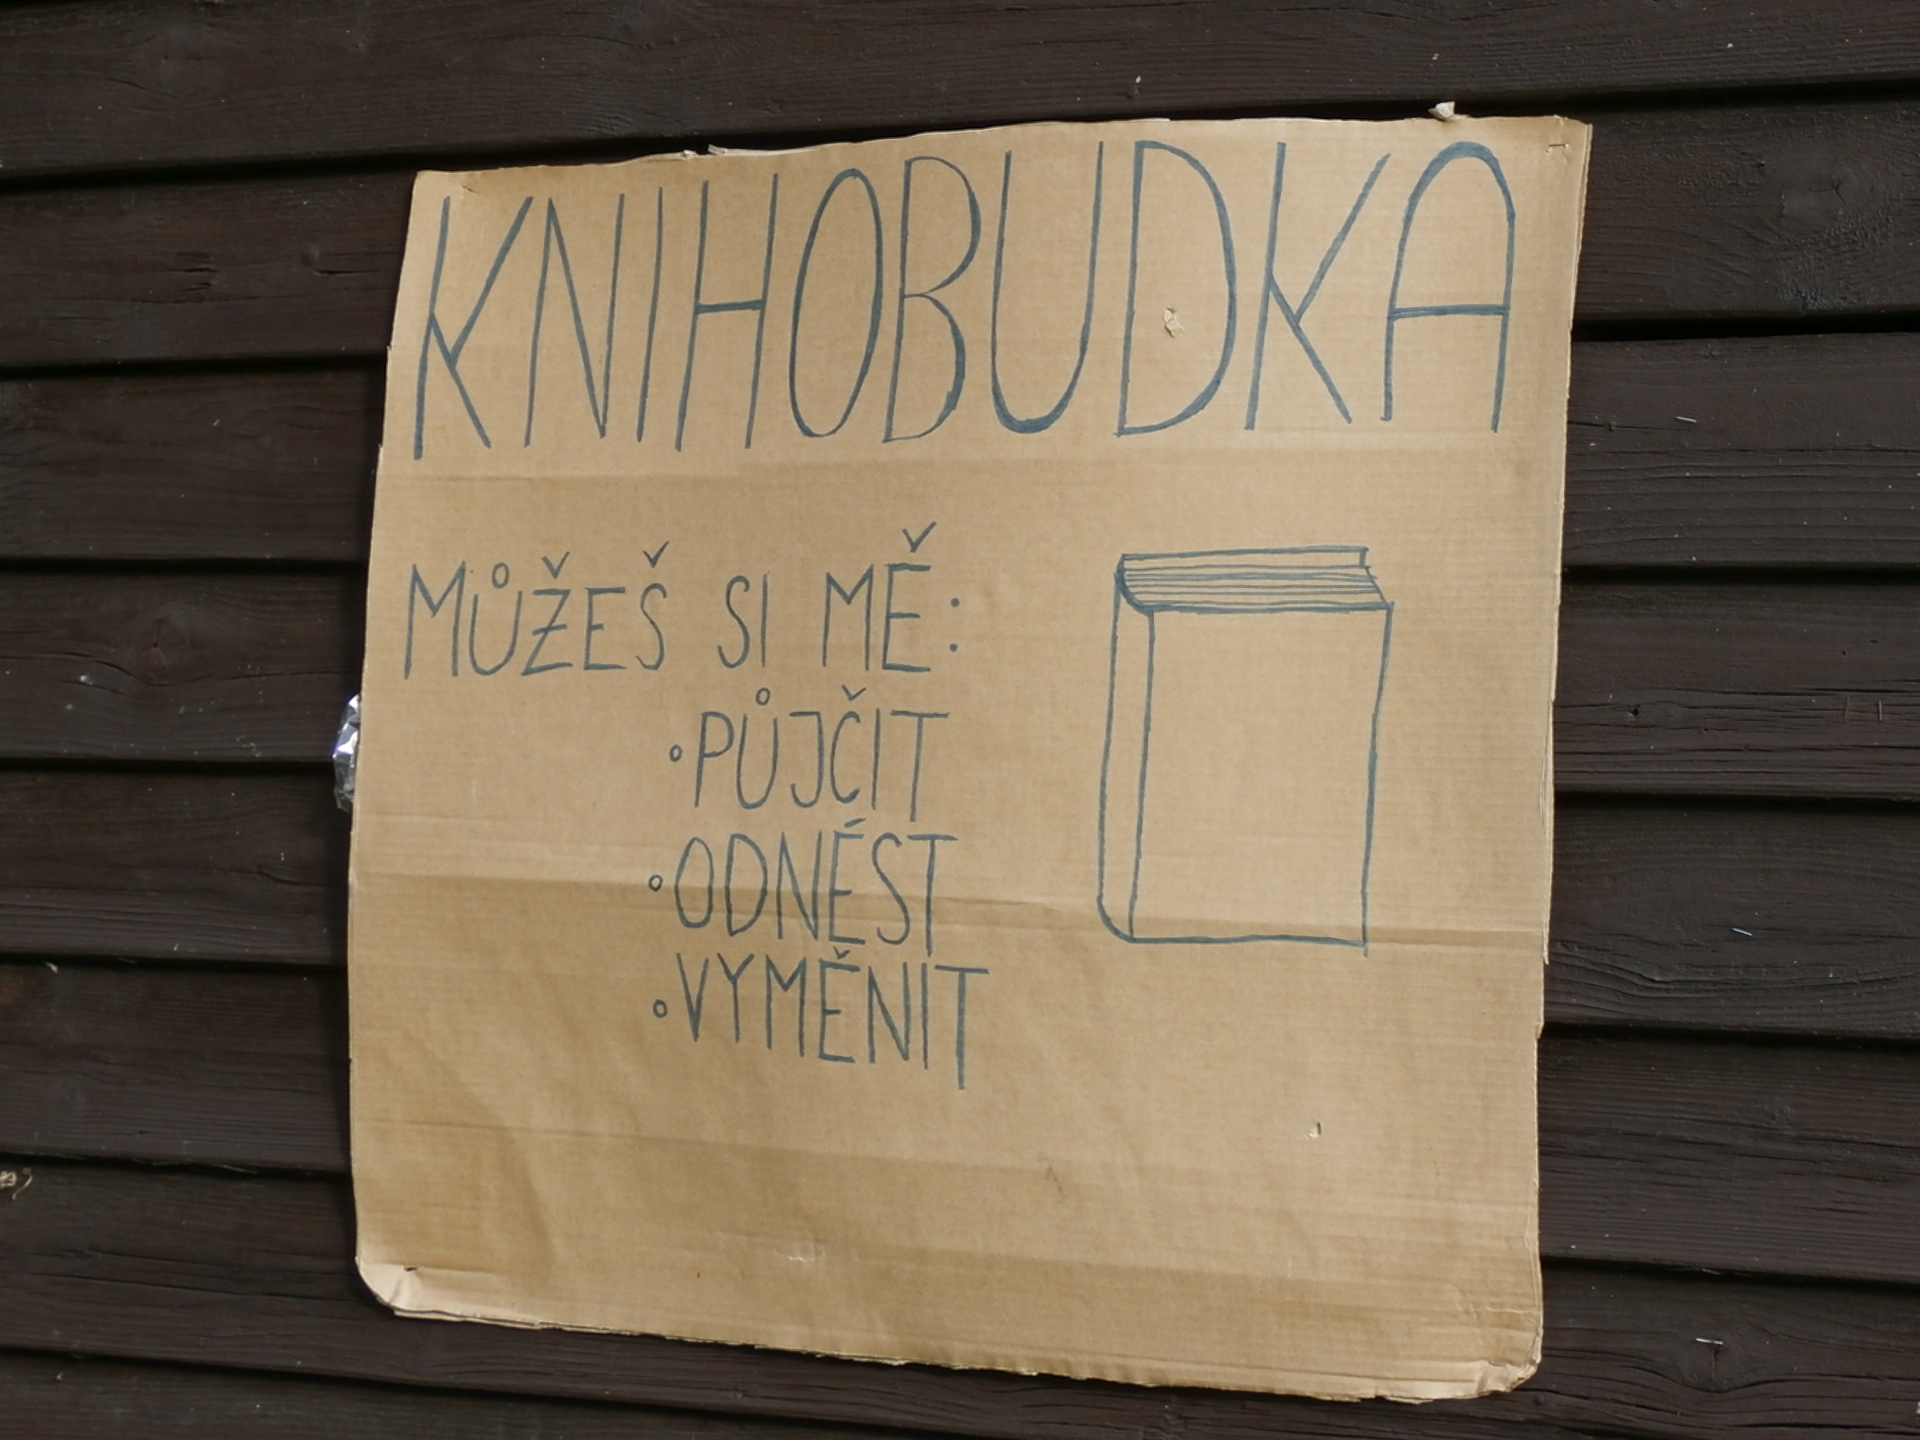 KNIHOBUDKA
MŮŽEŠ SI MĚ:
•PŮJČIT
•ODNÉST
•VYMĚNIT